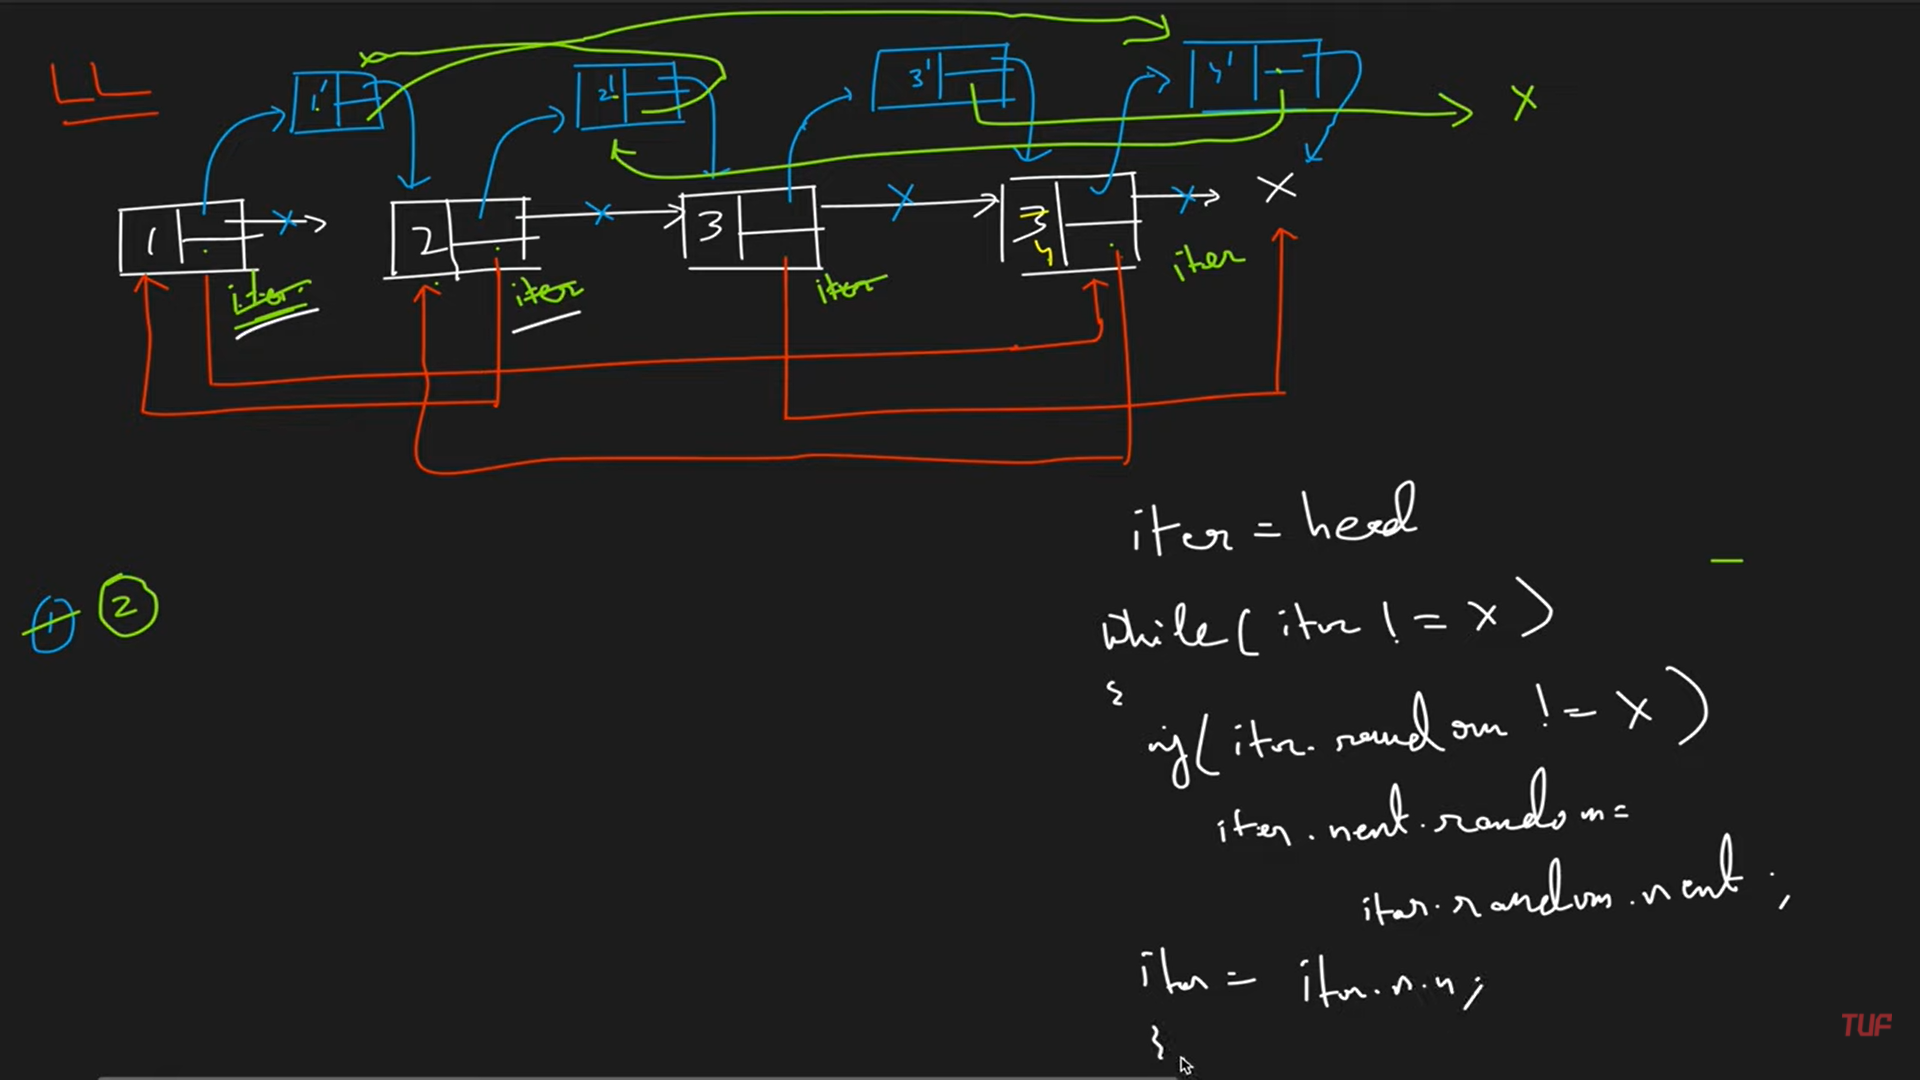 LL
1' 2' 3' 4' X
1 X 2 X 3 X 3 X X
4
iter iter iter iter
iter = head
① ②
while( iter != X )
{
if( iter. random != X )
iter . next . random =
iter. random . next ;
iter = iter. n. n ;
}
TUF